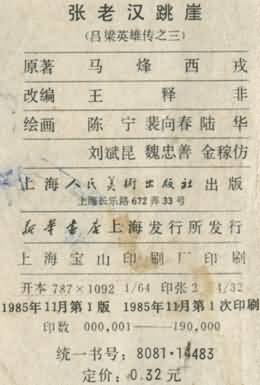 张老汉跳崖
(吕梁英雄传之三)
原著 马烽 西戎
改编 王释非
绘画 陈宁 裴向春 陆华
刘斌昆 魏忠善 金稼仿
上海人民美術出版社出版
上海长乐路672弄33号
新華書店上海发行所发行
上海宝山印刷厂印刷
开本 787×1092 1/64 印张 2 4/32
1985年11月第1版 1985年11月第1次印刷
印数 000,001——190,000
统一书号: 8081·14483
定价: 0.32元